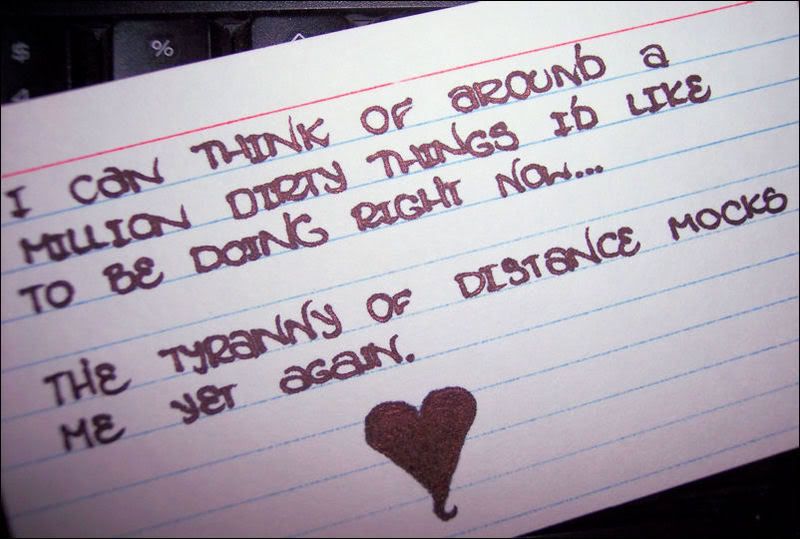 $ % ^
4
I CAN THINK OF AROUND A
MILLION DIRTY THINGS I'D LIKE
TO BE DOING RIGHT NOW...
THE TYRANNY OF DISTANCE MOCKS
ME YET AGAIN.